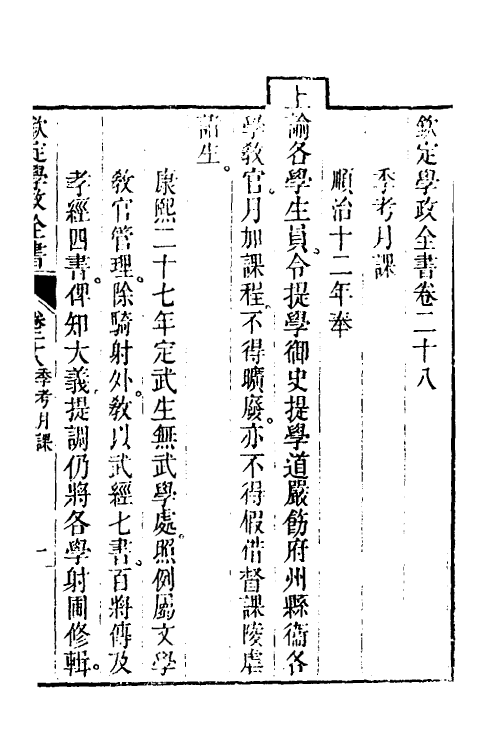 欽定學政全書卷二十八
季考月課
順治十二年奉
上諭各學生員令提學御史提學道嚴飭府州縣衞各
學教官月加課程不得曠廢亦不得假借督課陵虐
諸生。
康熙二十七年定武生無武學處照例屬文學
教官管理除騎射外教以武經七書百將傳及
孝經四書俾知大義提調仍將各學射圃修輯。
欽定學政全書
卷二十八季考月課
一